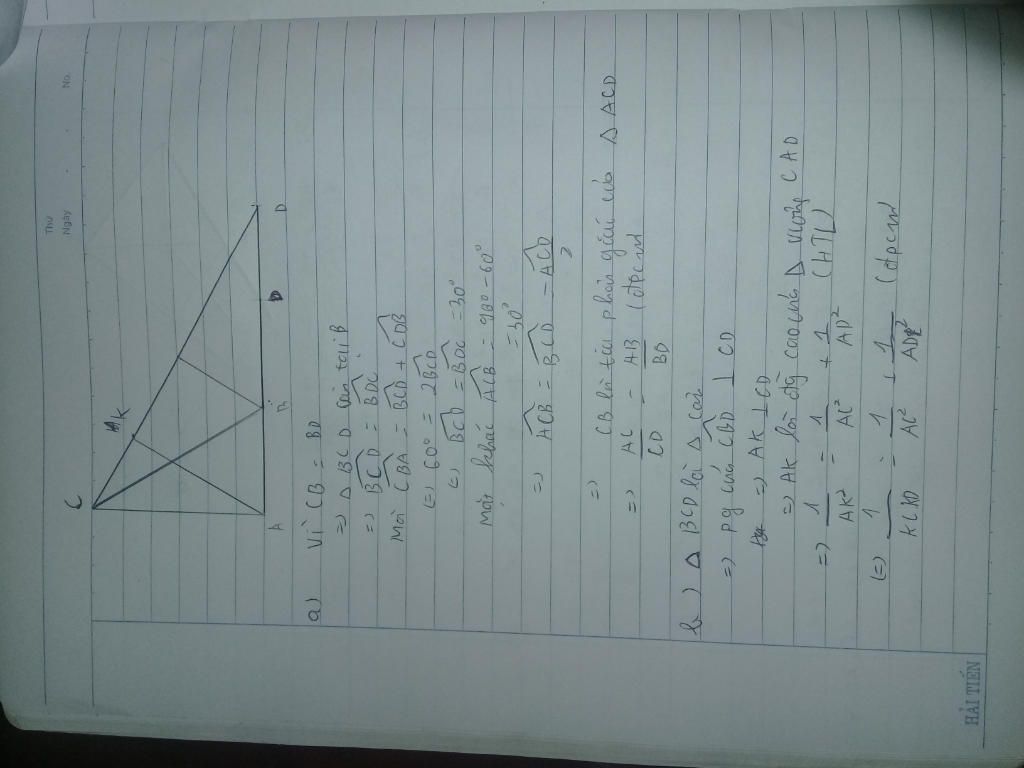 Thứ
Ngày
No.
C
K
A
B
D
a) Vì CB = BD
=> Δ BCD cân tại B
=> BCD = BDC
Mà CBA = BCD + CDB
(=) 60° = 2BCD
(=) BCD = BDC = 30°
Mặt khác ACB = 90° - 60°
= 30°
=> ACB = BCD = ACD
2
=> CB là tia phân giác của Δ ACD
=> AC = AB (đpcm)
CD BD
b) Δ BCD là Δ cân
=> pg của CBD ⊥ CD
=> AK ⊥ CD
=> AK là đg cao của Δ vuông CAD
=> 1 = 1 + 1 (HTL)
AK² AC² AD²
(=) 1 = 1 + 1 (đpcm)
AC² AD²
HẢI TIẾN